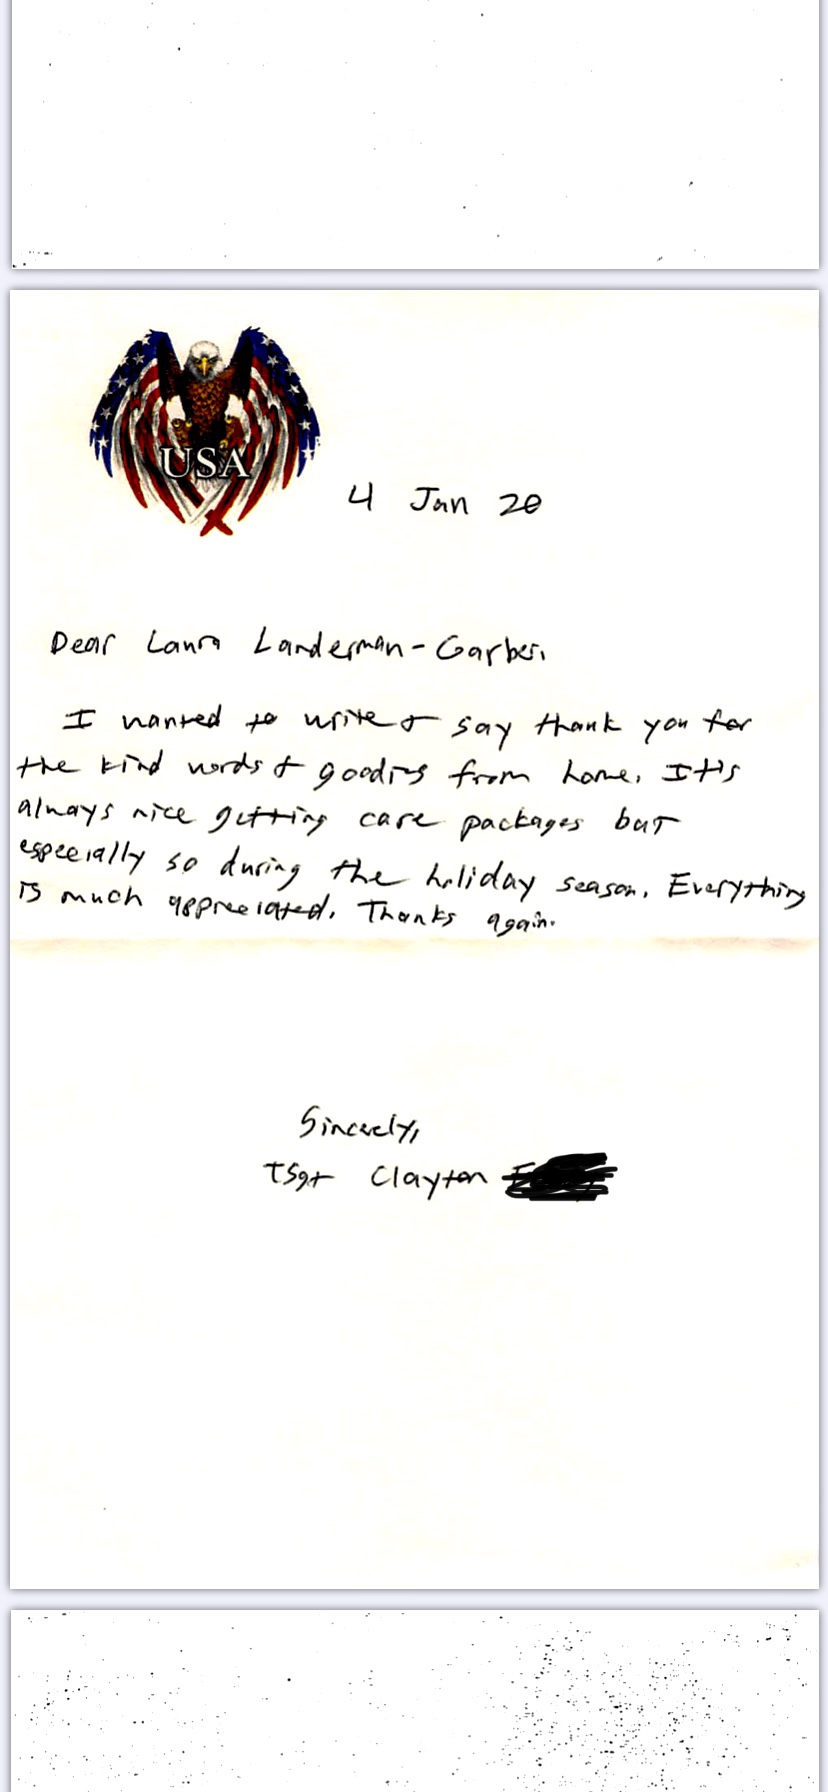 USA
4 Jan 20
Dear Laura Landerman-Garber,
I wanted to write & say thank you for
the kind words & goodies from home. It's
always nice getting care packages but
especially so during the holiday season. Everything
is much appreciated. Thanks again.
Sincerely,
TSgt Clayton